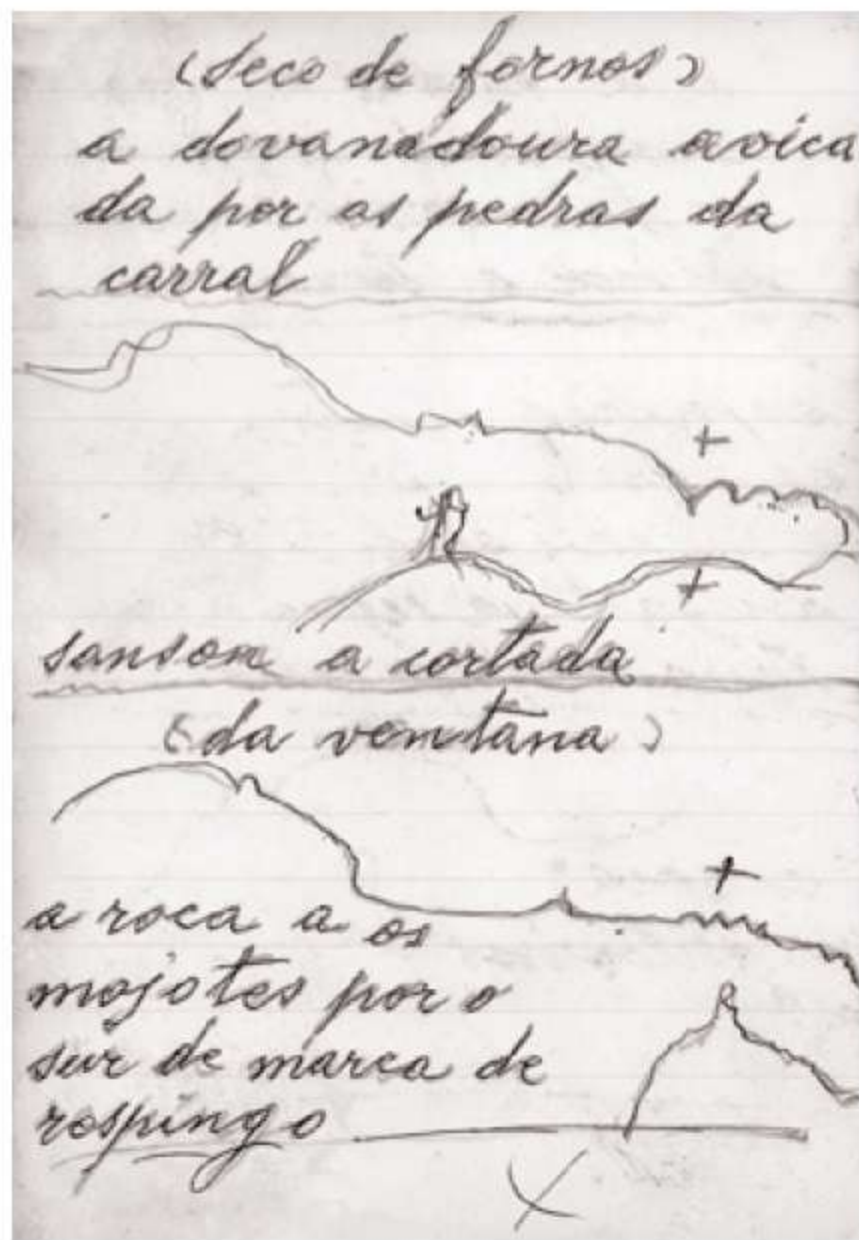 (seco de fornos)
a dovanadoura avica
da por as pedras da
carral
sansom a cortada
(da ventana)
a roca a os
mojotes por o
sur de marca de
rospingo